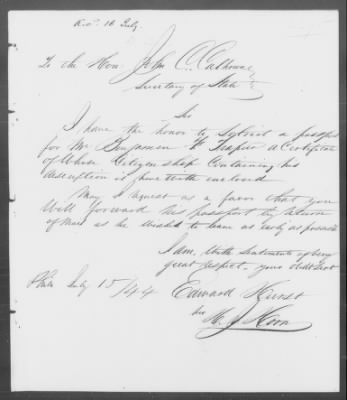 Recd. 16 July.
To the Hon. John C. Calhoun
Secretary of State
Sir
I have the honor to Solicit a passport
for Mr. Benjamin F. a Certificate
of Whose Citizenship Containing his
description is herewith enclosed
May I request as a favor that you
Will forward his passport by return
of Mail as he wishes to leave as early as possible
I am, With Sentiments of very
great respect, your obdt Svt
Phila July 15/44
Edward Hurst
per